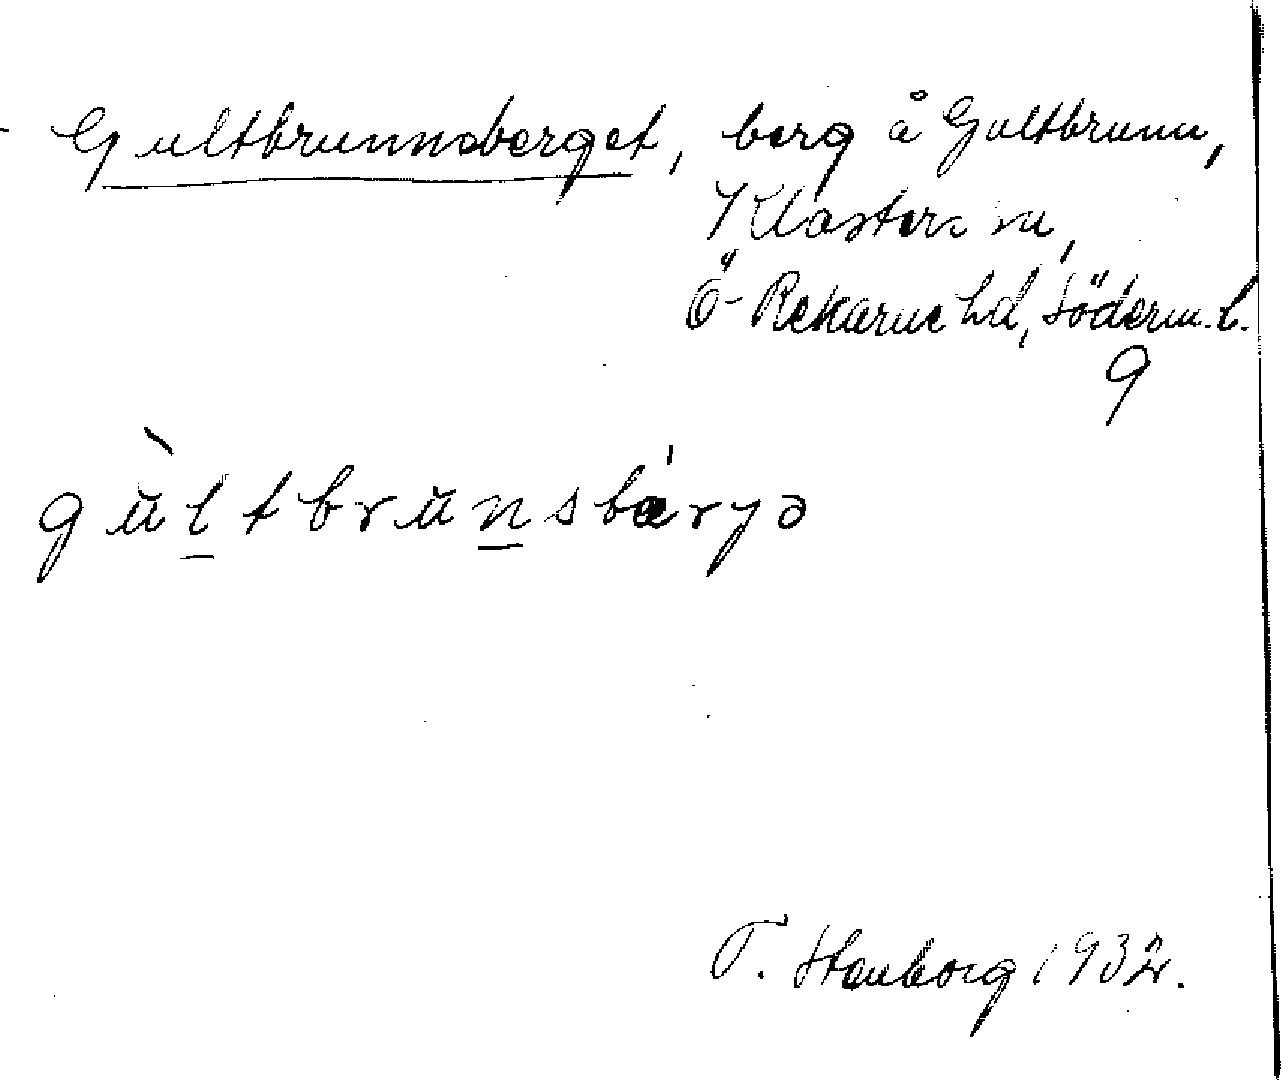 Gultbrunnsberget, berg å Gultbrunn,
Klosters sn,
Ö-Rekarne hd, Söderm. l.
9
gùltbrunsbǽryə
T. Stenborg 1932.